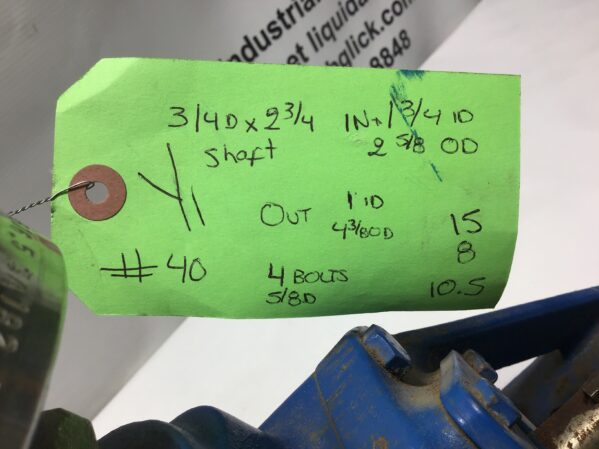 industrial
et liquida
glick.com
8848
3/4D x 2 3/4 IN + 1 3/4 ID
Shaft 2 5/8 OD
Y11
OUT 1 ID 15
4 3/8 OD 8
# 40 4 BOLTS 10.5
5/8D